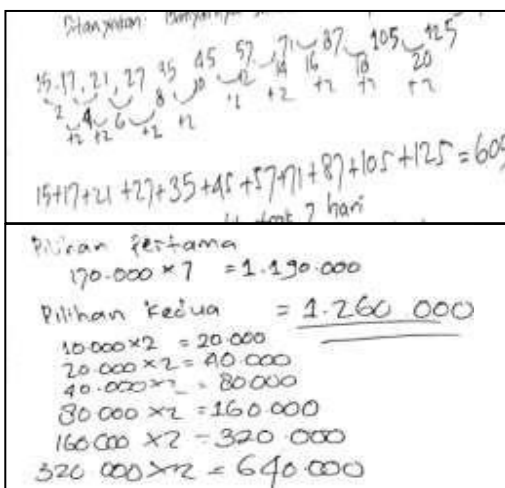 Ditanyakan: Banyaknya
15, 17, 21, 27 35 45 57 71 87 105 125
2 4 6 8 10 12 14 16 18 20
+2 +2 +2 +2 +2 +2 +2 +2 +2
15+17+21+27+35+45+57+71+87+105+125=605
7 hari
Pilihan Pertama
170.000 × 7 = 1.190.000
Pilihan Kedua = 1.260 000
10.000×2 = 20.000
20.000×2 = 40.000
40.000×2 = 80000
80 000 ×2 = 160.000
160 000 ×2 = 320.000
320 000 ×2 = 640.000